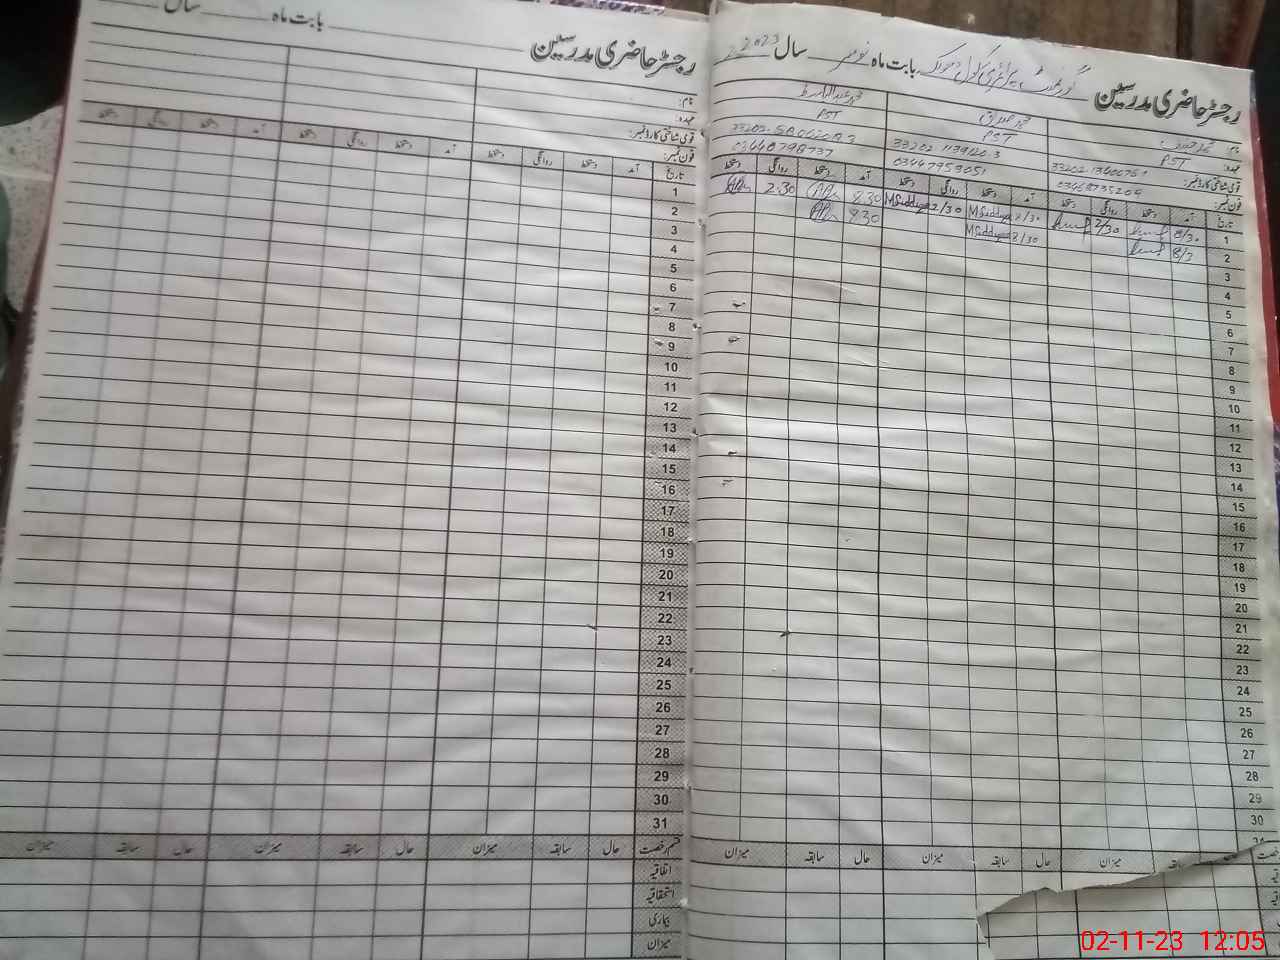 رجسٹر حاضری مدرسین گورنمنٹ پرائمری سکول بابت ماہ نومبر سال 2023
نام: محمد صدیق
عہدہ: PST PST PST
قومی شناختی کارڈ نمبر: 33202 1139120.3
فون نمبر: 03468735204 03447959051 03440798737
تاریخ آمد دستخط روانگی دستخط آمد دستخط روانگی دستخط آمد دستخط روانگی دستخط
1 8/30 2/30 8/30 MSiddique 2/30 MSiddique 8.30 2.30
2 8/3 8/30 MSiddique 8.30
3
4
5
6
7
8
9
10
11
12
13
14
15
16
17
18
19
20
21
22
23
24
25
26
27
28
29
30
رخصت میزان حال سابقہ میزان حال سابقہ میزان
رجسٹر حاضری مدرسین بابت ماہ سال
نام:
عہدہ:
قومی شناختی کارڈ نمبر:
فون نمبر:
تاریخ آمد دستخط روانگی دستخط آمد دستخط روانگی دستخط آمد دستخط روانگی دستخط
1
2
3
4
5
6
7
8
9
10
11
12
13
14
15
16
17
18
19
20
21
22
23
24
25
26
27
28
29
30
31
قسم رخصت حال سابقہ میزان حال سابقہ میزان حال سابقہ میزان
اتفاقیہ
استحقاقیہ
بیماری
میزان
02-11-23 12:05